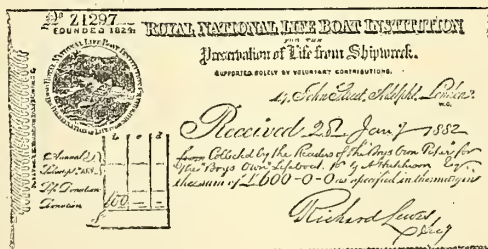 No Z1297
FOUNDED 1824.
ROYAL NATIONAL LIFE BOAT INSTITUTION
FOR THE
Preservation of Life from Shipwreck.
SUPPORTED SOLELY BY VOLUNTARY CONTRIBUTIONS.
14, John Street, Adelphi, London.
W.C.
Received 28 Jany 1882
from Collected by the Readers of the "Boys Own Paper" for
the "Boys Own" Lifeboat, by G A Hutchison Esq
the sum of £600-0-0 as specified in the margin
£ s d
Annual
Subscript 188
Life Donation
Donation 600
£
Richard Lewis
Secy